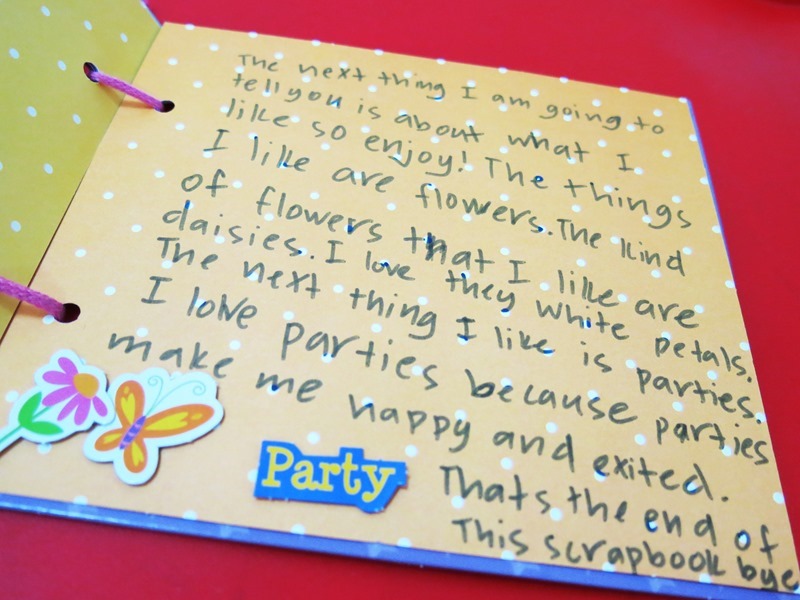 The next thing I am going to
tell you is about what I
like so enjoy! The things
I like are flowers. The kind
of flowers that I like are
daisies. I love they white petals.
The next thing I like is parties.
I love parties because parties
make me happy and exited.
Thats the end of
This scrapbook bye
Party